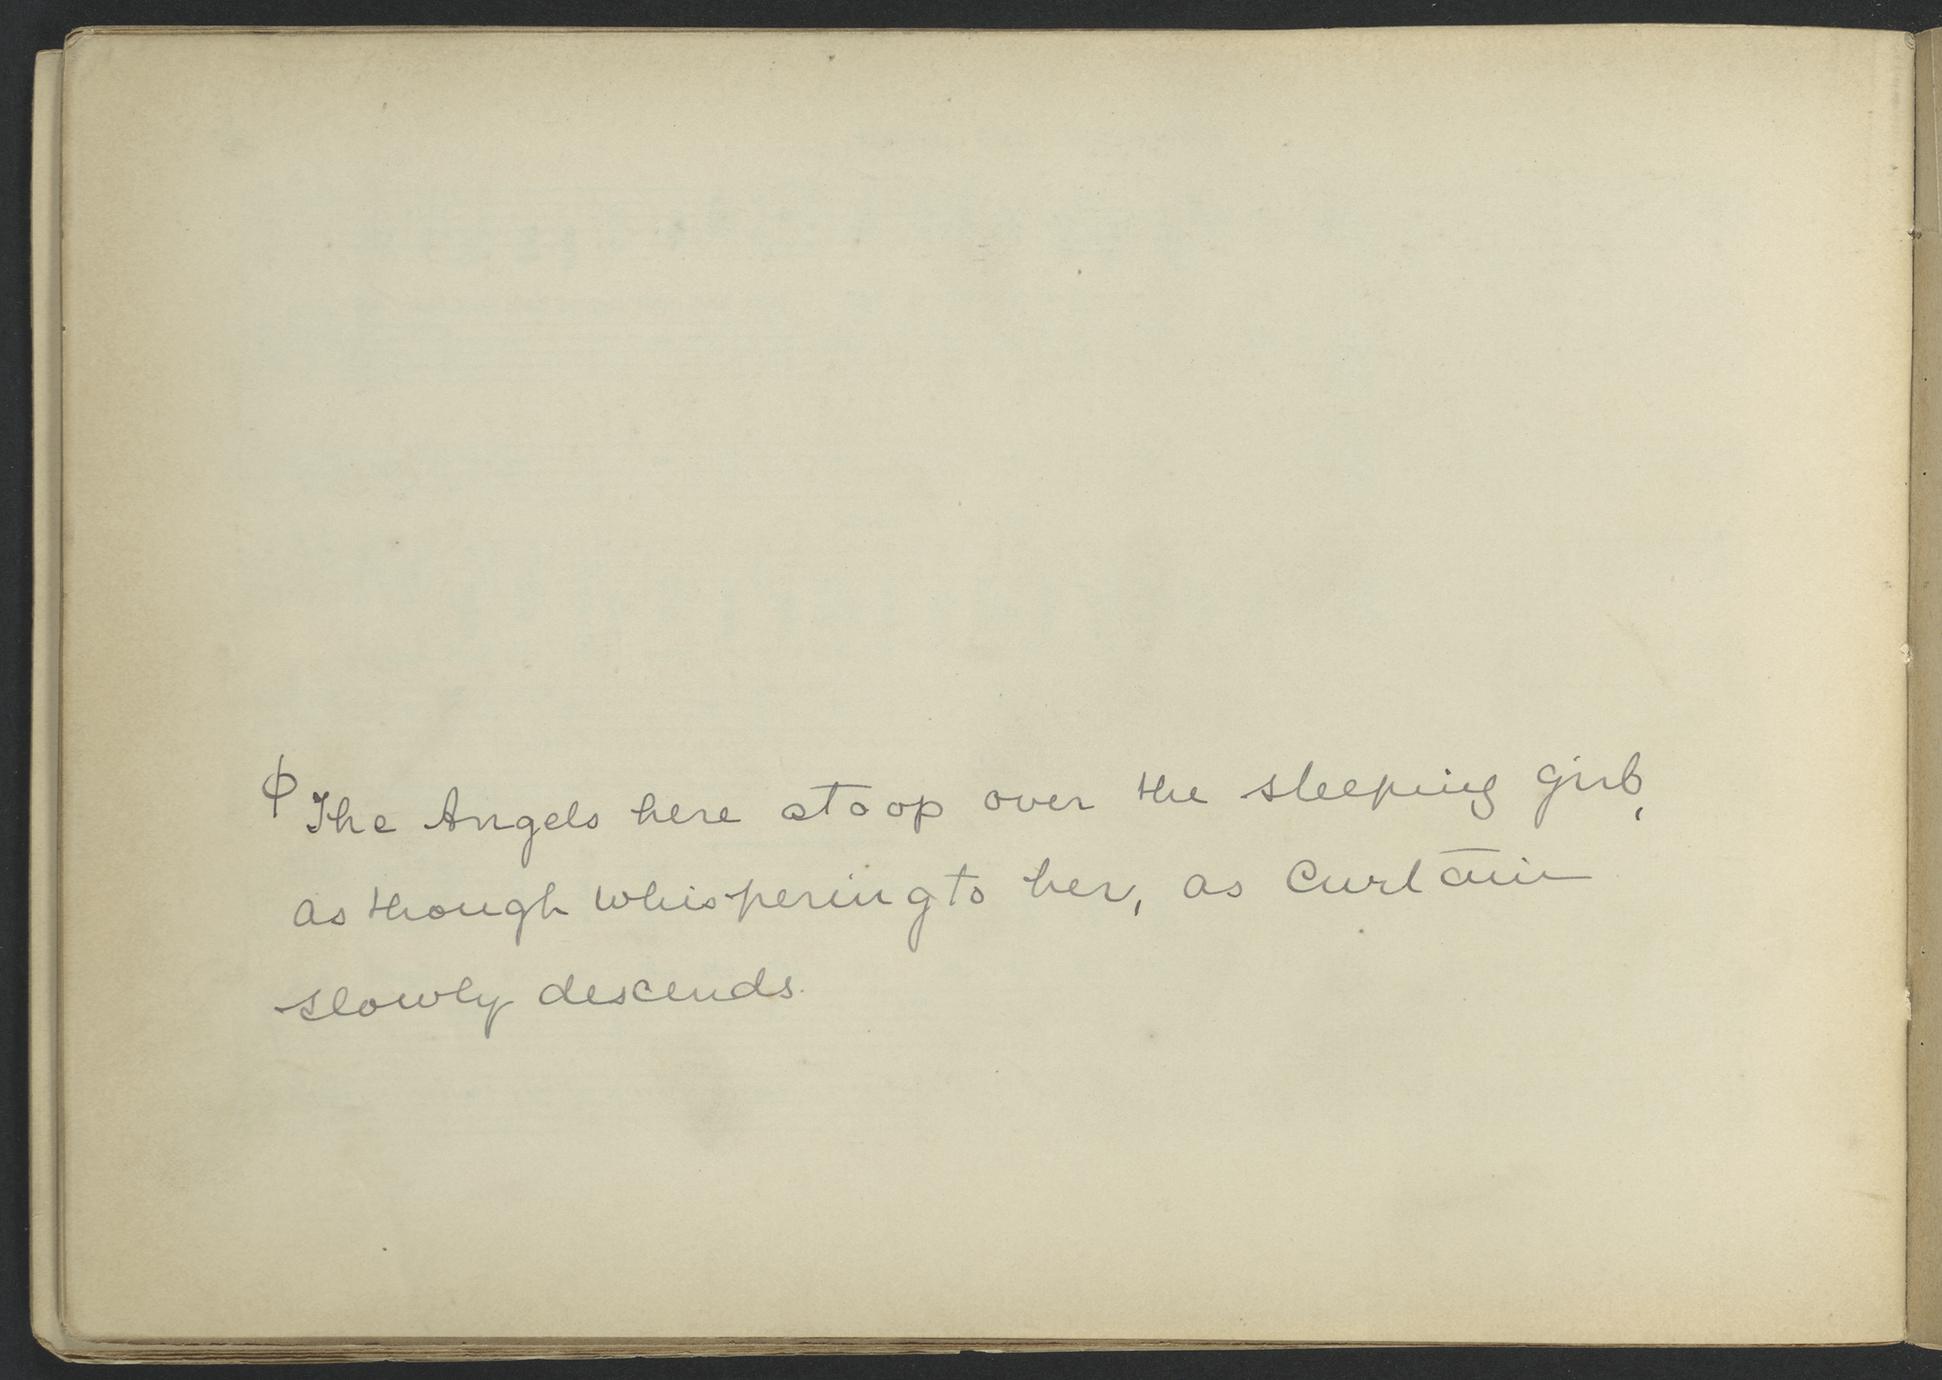 ϕ The Angels here stoop over the sleeping girl,
as though whispering to her, as Curtain
slowly descends.